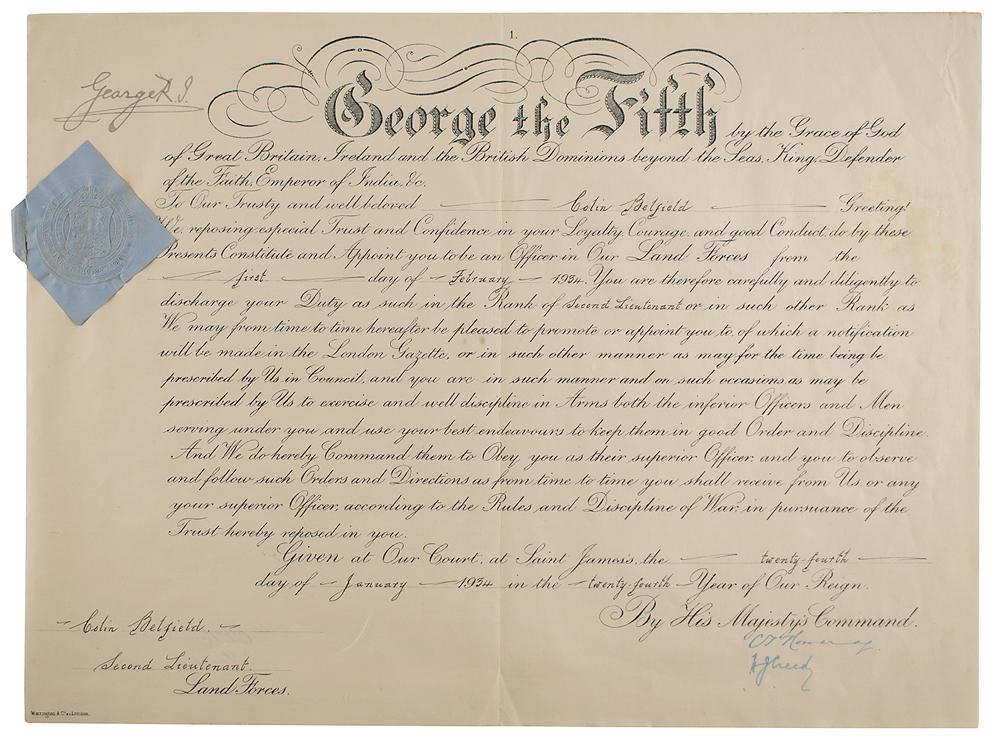 1.
George R.I.
George the Fifth by the Grace of God
of Great Britain, Ireland and the British Dominions beyond the Seas, King, Defender
of the Faith, Emperor of India, &c.
To Our Trusty and well beloved Colin Belfield Greeting!
We, reposing especial Trust and Confidence in your Loyalty, Courage, and good Conduct, do by these
Presents Constitute and Appoint you to be an Officer in Our Land Forces from the
first day of February 1934. You are therefore carefully and diligently to
discharge your Duty as such in the Rank of Second Lieutenant or in such other Rank as
We may from time to time hereafter be pleased to promote or appoint you to, of which a notification
will be made in the London Gazette, or in such other manner as may for the time being be
prescribed by Us in Council, and you are in such manner and on such occasions as may be
prescribed by Us to exercise and well discipline in Arms both the inferior Officers and Men
serving under you and use your best endeavours to keep them in good Order and Discipline.
And We do hereby Command them to Obey you as their superior Officer, and you to observe
and follow such Orders and Directions as from time to time you shall receive from Us, or any
your superior Officer, according to the Rules and Discipline of War, in pursuance of the
Trust hereby reposed in you.
Given at Our Court, at Saint James's, the twenty-fourth
day of January 1934 in the twenty-fourth Year of Our Reign.
By His Majesty's Command.
Colin Belfield.
Second Lieutenant.
Land Forces.
HJCreedy
Warrington & Co. London.